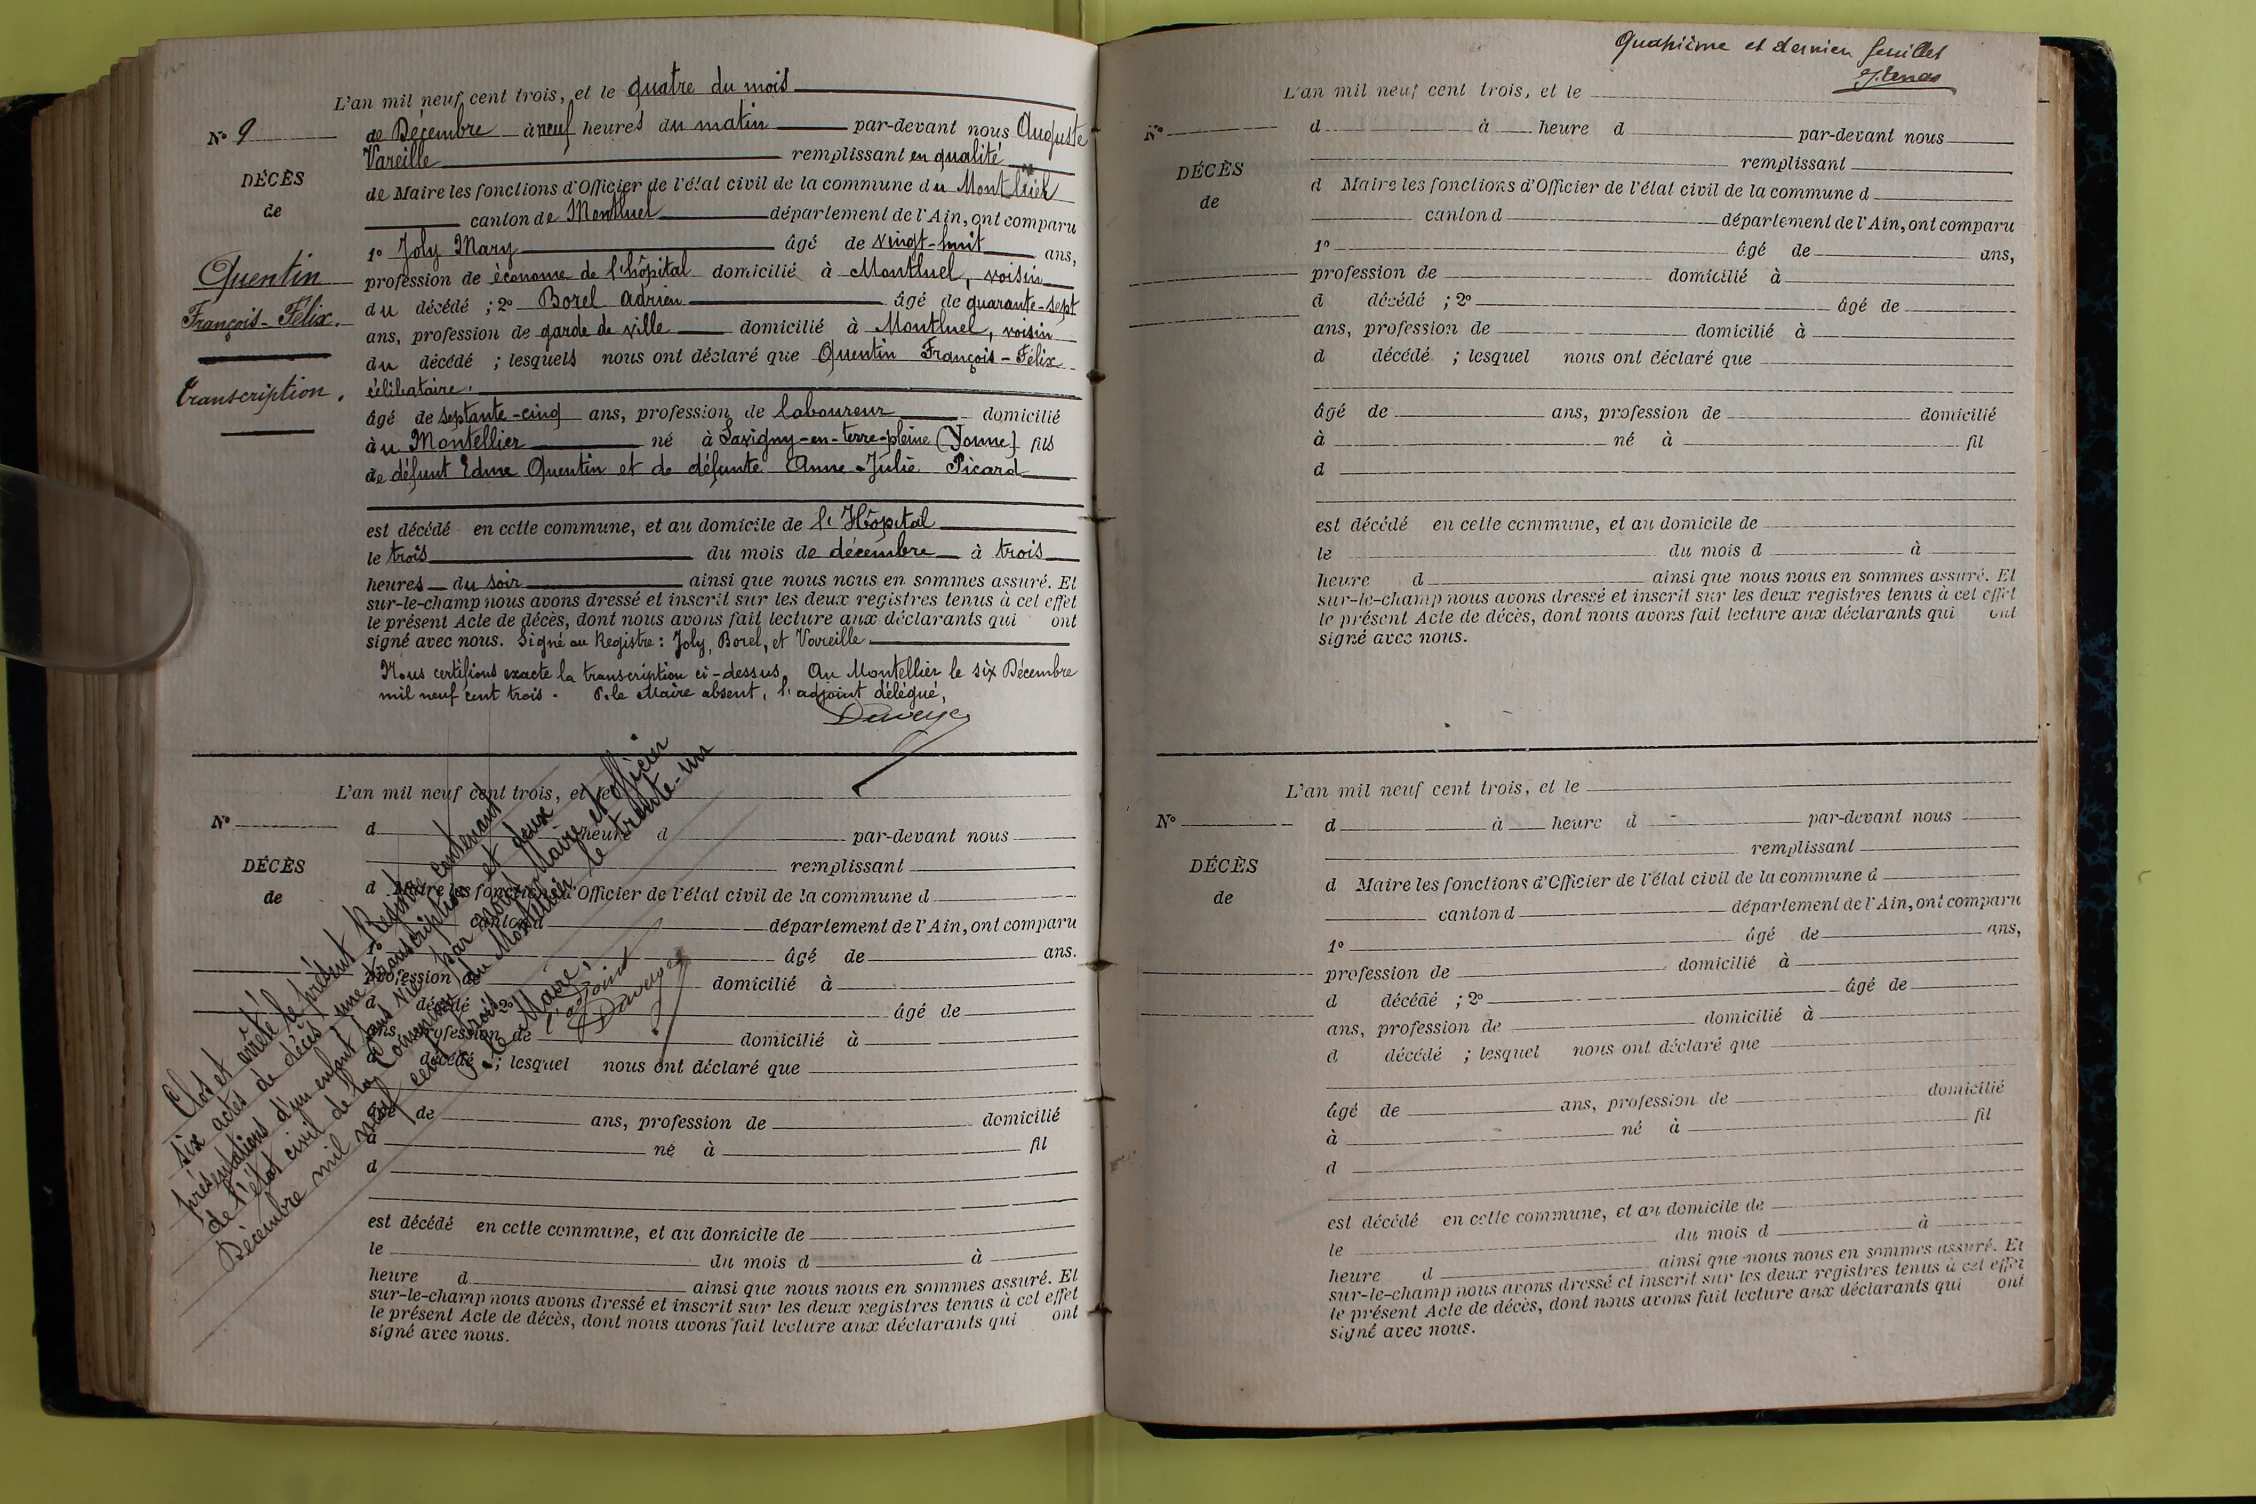 L'an mil neuf cent trois, et le quatre du mois
N° 9
de Décembre à neuf heures du matin par-devant nous Auguste
Vareille remplissant en qualité
DÉCÈS
de Maire les fonctions d'Officier de l'état civil de la commune du
de
canton de Montluel département de l'Ain, ont comparu
1° Joly Mary âgé de vingt-huit ans,
Quentin
profession de économe de l'hôpital domicilié à Montluel, voisin
François-Félix.
du décédé ; 2° Borel adrien âgé de quarante-sept
ans, profession de garde de ville domicilié à Montluel, voisin
du décédé ; lesquels nous ont déclaré que Quentin François-Félix
Transcription.
célibataire.
âgé de septante-cinq ans, profession de laboureur domicilié
au Montellier né à Savigny-en-terre-pleine (Yonne) fils
de défunt Edme Quentin et de défunte Anne-Julie Picard
est décédé en cette commune, et au domicile de l'Hôpital
le trois du mois de décembre à trois
heures du soir ainsi que nous nous en sommes assuré. Et
sur-le-champ nous avons dressé et inscrit sur les deux registres tenus à cet effet
le présent Acte de décès, dont nous avons fait lecture aux déclarants qui ont
signé avec nous. Signé au Registre : Joly, Borel, et Vareille
Nous certifions exacte la transcription ci-dessus. Au Montellier le six Décembre
mil neuf cent trois. P. le Maire absent, l'adjoint délégué,
L'an mil neuf cent trois, et le
N°
d heure d par-devant nous
remplissant
DÉCÈS
d Maire les fonctions d'Officier de l'état civil de la commune d
de
canton d département de l'Ain, ont comparu
âgé de ans.
profession de domicilié à
d décédé ; 2° âgé de
ans, profession de domicilié à
d décédé ; lesquel nous ont déclaré que
âgé de ans, profession de domicilié
à né à fil
d
est décédé en cette commune, et au domicile de
le du mois d à
heure d ainsi que nous nous en sommes assuré. Et
sur-le-champ nous avons dressé et inscrit sur les deux registres tenus à cet effet
le présent Acte de décès, dont nous avons fait lecture aux déclarants qui ont
signé avec nous.
Clos et arrêté le présent Registre contenant
six actes de décès, une transcription et deux
présentations d'un enfant sans vie par nous Maire et officier
de l'état civil de la Commune du Montellier le trente-un
Décembre mil neuf cent trois
P. le Maire,
l'adjoint
Quatrième et dernier feuillet
L'an mil neuf cent trois, et le
N°
d à heure d par-devant nous
remplissant
DÉCÈS
d Maire les fonctions d'Officier de l'état civil de la commune d
de
canton d département de l'Ain, ont comparu
1° âgé de ans,
profession de domicilié à
d décédé ; 2° âgé de
ans, profession de domicilié à
d décédé ; lesquel nous ont déclaré que
âgé de ans, profession de domicilié
à né à fil
d
est décédé en cette commune, et au domicile de
le du mois d à
heure d ainsi que nous nous en sommes assuré. Et
sur-le-champ nous avons dressé et inscrit sur les deux registres tenus à cet effet
le présent Acte de décès, dont nous avons fait lecture aux déclarants qui ont
signé avec nous.
L'an mil neuf cent trois, et le
N°
d à heure d par-devant nous
remplissant
DÉCÈS
d Maire les fonctions d'Officier de l'état civil de la commune d
de
canton d département de l'Ain, ont comparu
1° âgé de ans,
profession de domicilié à
d décédé ; 2° âgé de
ans, profession de domicilié à
d décédé ; lesquel nous ont déclaré que
âgé de ans, profession de domicilié
à né à fil
d
est décédé en cette commune, et au domicile de
le du mois d à
heure d ainsi que nous nous en sommes assuré. Et
sur-le-champ nous avons dressé et inscrit sur les deux registres tenus à cet effet
le présent Acte de décès, dont nous avons fait lecture aux déclarants qui ont
signé avec nous.